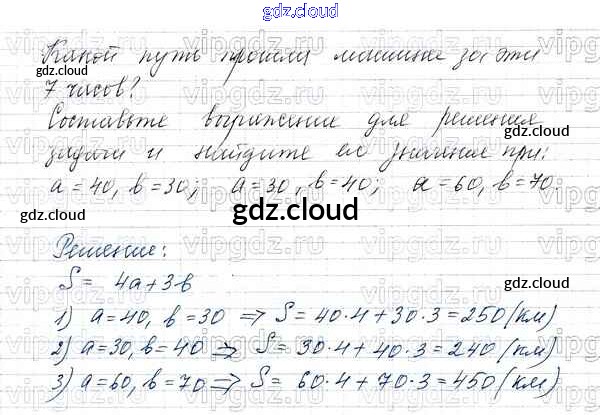 gdz.cloud
Какой путь прошла машина за эти
gdz.cloud
gdz.cloud
7 часов?
Составьте выражение для решения
gdz.cloud
задачи и найдите его значение при:
a = 40, b = 30; a = 30, b = 40; a = 60, b = 70.
gdz.cloud
gdz.cloud
Решение:
gdz.cloud
S = 4a+3b
gdz.cloud
1) a=40, b=30 ⇒ S = 40·4+30·3=250 (км)
2) a=30, b=40 ⇒ S = 30·4+40·3=240 (км)
gdz.cloud
gdz.cloud
3) a=60, b=70 ⇒ S = 60·4+70·3=450 (км)
gdz.cloud